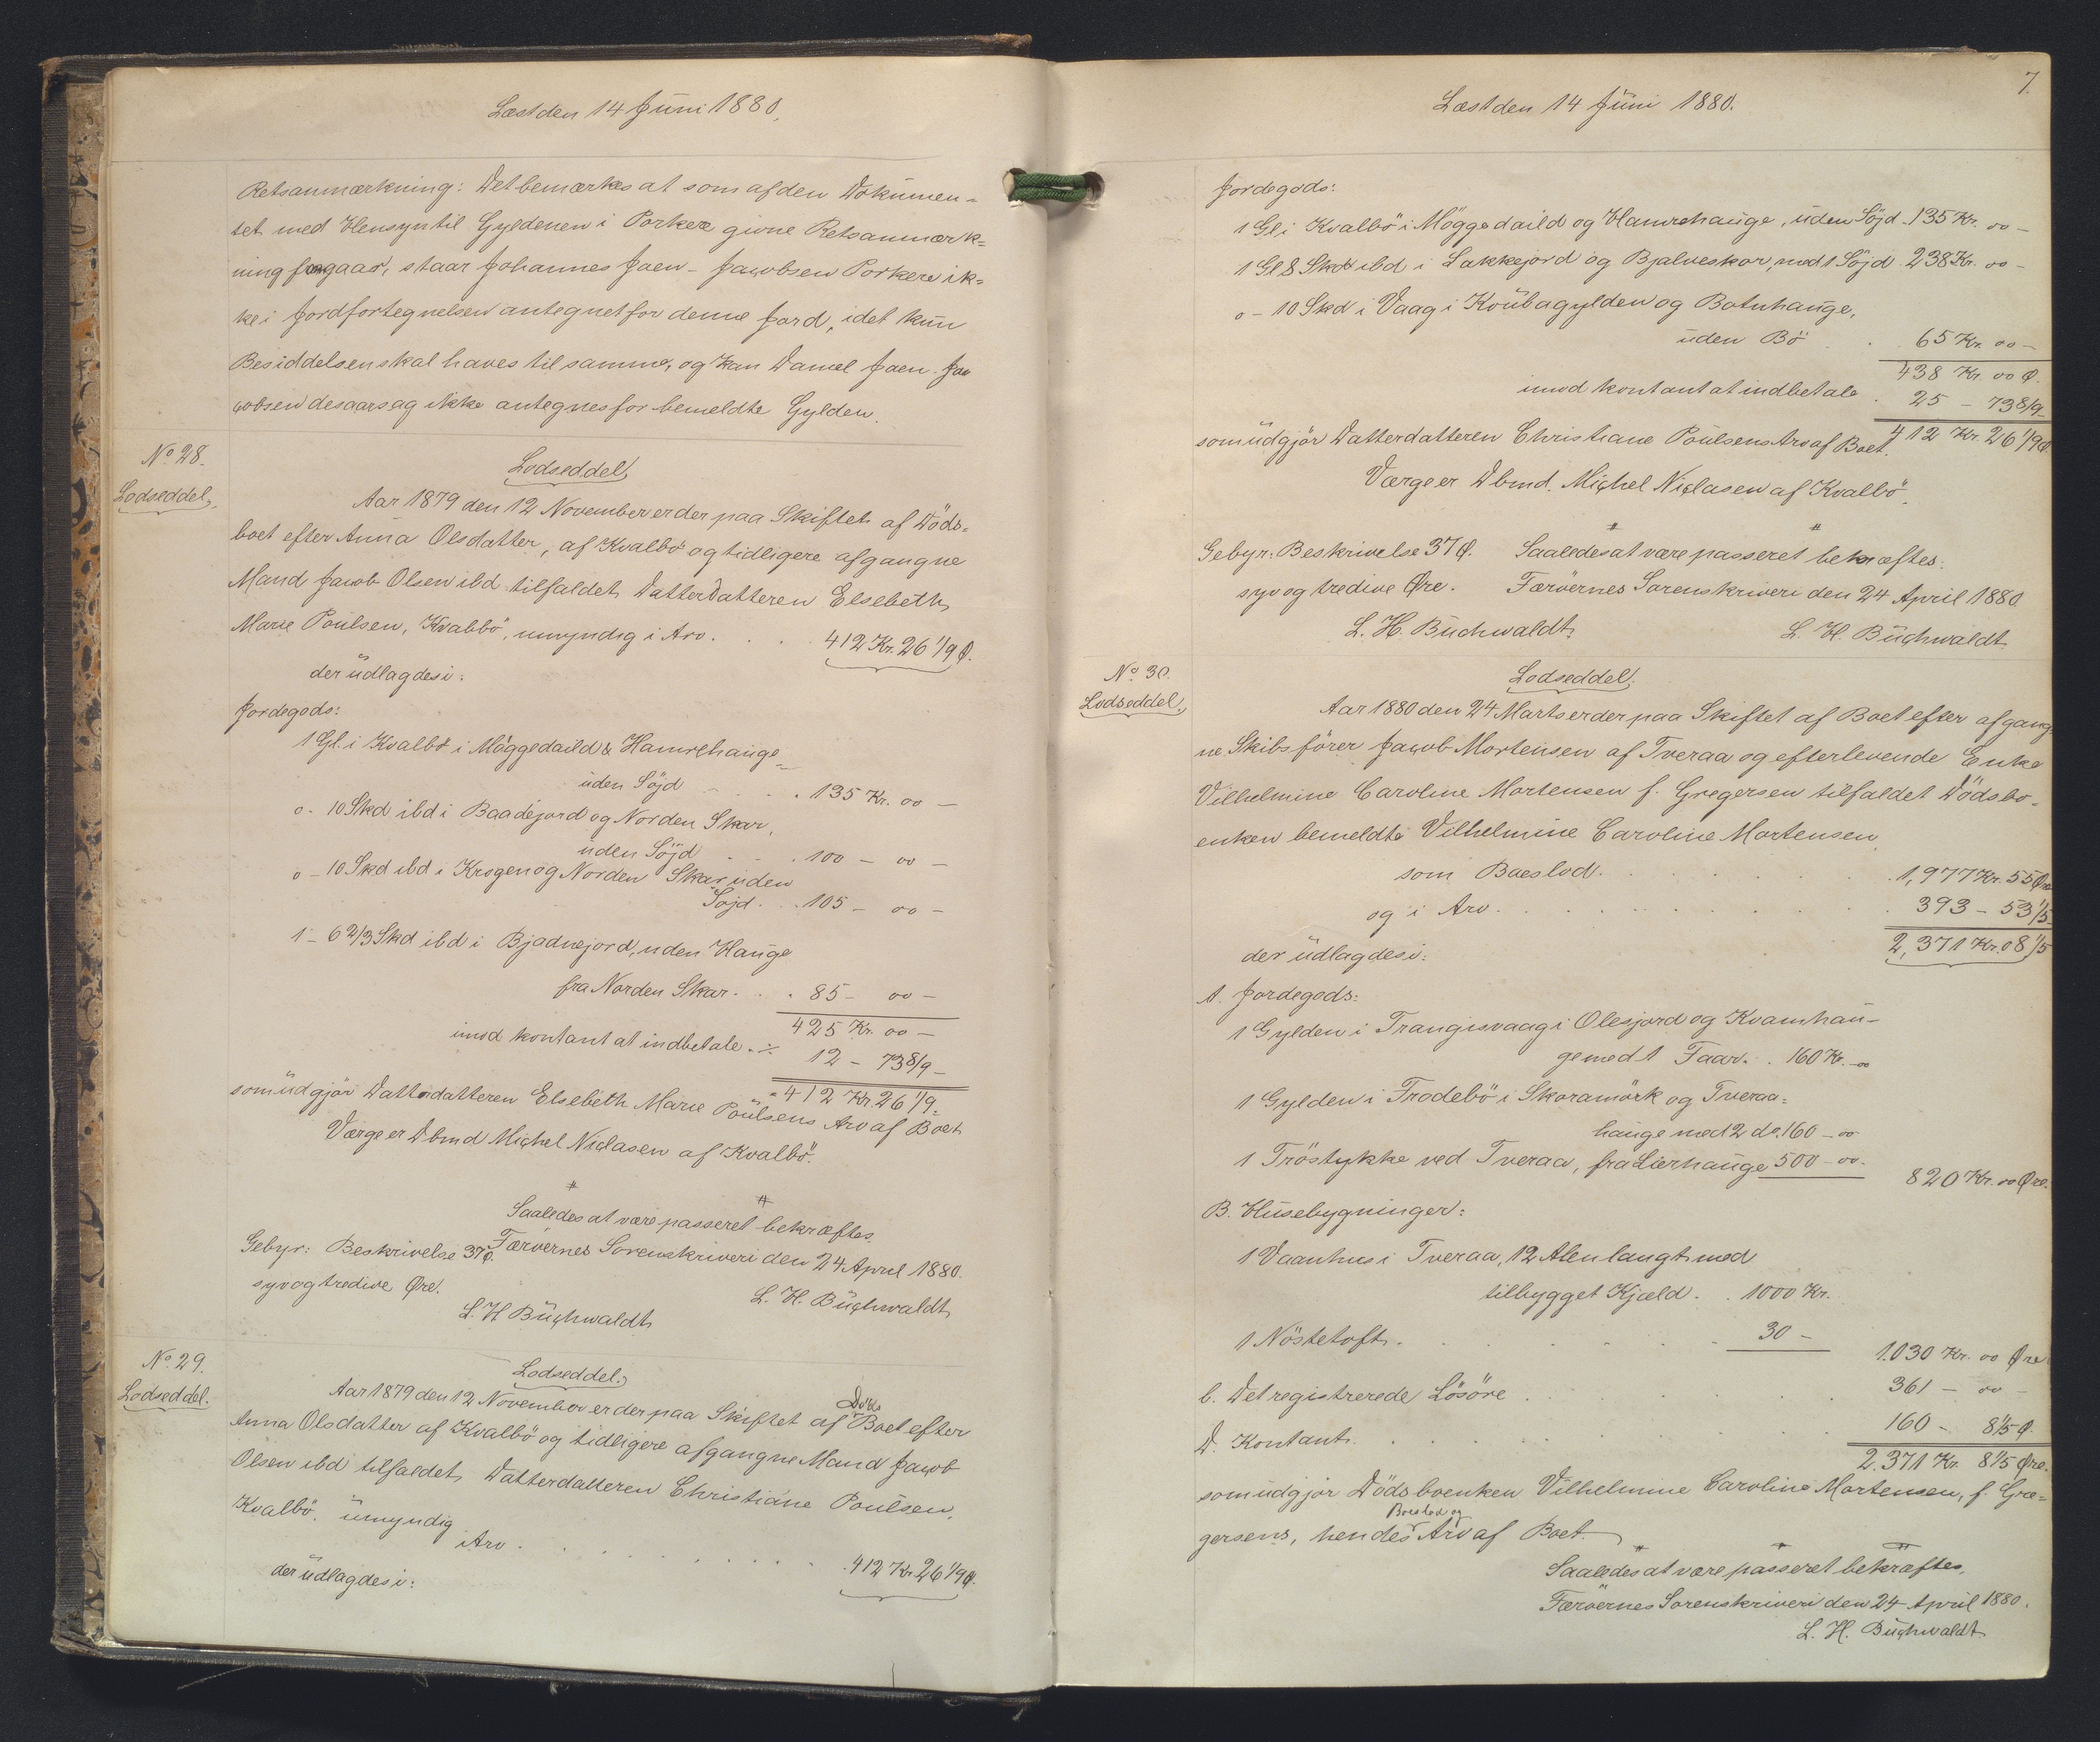 Læst den 14 Juni 1880.
Retsanmærkning: Det bemærkes at som af den Dokumen-
tet med Hensyn til Gyldenen i Porkere givne Retsanmærk-
ning fremgaar, staar Johannes Joen-Jacobsen Porkere ik-
ke i Jordfortegnelsen antegnet for denne Jord, idet kun
Besiddelsen skal haves til samme, og kan Daniel Joen-Ja-
cobsen desaarsag ikke antegnes for bemeldte Gylden.
No. 28.
Lodseddel.
Lodseddel
Aar 1879 den 12 November er der paa Skiftet af Döds-
boet efter Anna Olsdatter, af Kvalbö og tidligere afgangne
Mand Jacob Olsen ibd tilfaldet Datterdatteren Elsebeth
Marie Poulsen, Kvalbö, umyndig i Arv . . . 412 Kr. 26 1/9 Ø.
der udlagdes i:
Jordegods:
1 Gl. i Kvalbö i Möggedaild & Hamrehauge
uden Söjd . . . 135 Kr. 00 –
0 - 10 Skd ibd i Baadejord og Norden Skar,
uden Söjd . . . 100 – 00 –
0 – 10 Skd ibd i Krogen og Norden Skar uden
Söjd . . 105 – 00 –
1 – 6 2/3 Skd ibd i Bjadnejord, uden Hauge
fra Norden Skar . . . 85 – 00 –
425 Kr. 00 –
imod kontant at indbetale . ÷ 12 – 73 8/9 –
= 412 Kr. 26 1/9 =
som udgjör Datterdatteren Elsebeth Marie Poulsens Arv af Boet
Værge er Dbmd Michel Niclasen af Kvalbö.
Saaledes at være passeret bekræftes.
Gebyr: Beskrivelse 37 Ø. Færöernes Sorenskriveri den 24 April 1880.
syv og tredive Øre.
L. H. Buchwaldt
L. H. Buchwaldt
No. 29.
Lodseddel.
Lodseddel.
Aar 1879 den 12 November er der paa Skiftet af Döds Boet efter
Anna Olsdatter af Kvalbö og tidligere afgangne Mand Jacob
Olsen ibd tilfaldet Datterdatteren Christiane Poulsen,
Kvalbö, umyndig
i Arv . . . 412 Kr. 26 1/9 Ø.
der udlagdes i:
7.
Læst den 14 Juni 1880.
Jordegods:
1 Gl i Kvalbö i Möggedaild og Hamrehauge, uden Söjd . 135 Kr. 00 –
1 Gl 8 Skd ibd i Lakkejord og Bjalveskor, med 1 Söjd 238 Kr. 00 –
0 – 10 Skd i Vaag i Koubagylden og Botnhauge,
uden Bö . . 65 Kr. 00 –
438 Kr. 00 Ø.
imod kontant at indbetale . 25 – 73 8/9 –
som udgjör Datterdatteren Christiane Poulsens Arv af Boet. 412 Kr. 26 1/9 Ø.
Værge er Dbmd. Michel Niclasen af Kvalbö.
Gebyr: Beskrivelse 37 Ø. Saaledes at være passeret bekræftes.
syv og tredive Øre. Færöernes Sorenskriveri den 24 April 1880
L. H. Buchwaldt
L. H. Buchwaldt
No. 30.
Lodseddel.
Lodseddel.
Aar 1880 den 24 Marts er der paa Skiftet af Boet efter afgang-
ne Skibsförer Jacob Mortensen af Tveraa og efterlevende Enke
Vilhelmine Caroline Mortensen f. Gregersen tilfaldet Dödsbo-
enken bemeldte Vilhelmine Caroline Mortensen
som Boeslod . . . 1,977 Kr. 55 Øre
og i Arv . . . 393 – 53 1/5
2,371 Kr. 08 1/5
der udlagdes i:
A. Jordegods:
1 Gylden i Trangisvaag i Olesjord og Kvamhau-
ge med 1 Faar . . 160 Kr. – 00
1 Gylden i Frodebö i Skoramörk og Tveraa-
hauge med 2 do. 160 – 00
1 Tröstykke ved Tveraa, fra Lierhauge 500 – 00 –
820 Kr. 00 Øre.
B. Husebygninger:
1 Vaanhus i Tveraa, 12 Alen langt med
tilbygget Kjæld . . 1000 Kr.
1 Nöstetoft . . . 30 –
1.030 Kr. 00 Øre
C. Det registrerede Lösöre . . . 361 – 00 –
D. Kontant . . . 160 – 8 1/5 Ø.
2.371 Kr. 8 1/5 Øre.
som udgjör Dödsboenken Vilhelmine Caroline Mortensen, f. Gre-
gersens, hendes Boeslod og Arv af Boet.
Saaledes at være passeret bekræftes,
Færöernes Sorenskriveri den 24 April 1880.
L. H. Buchwaldt